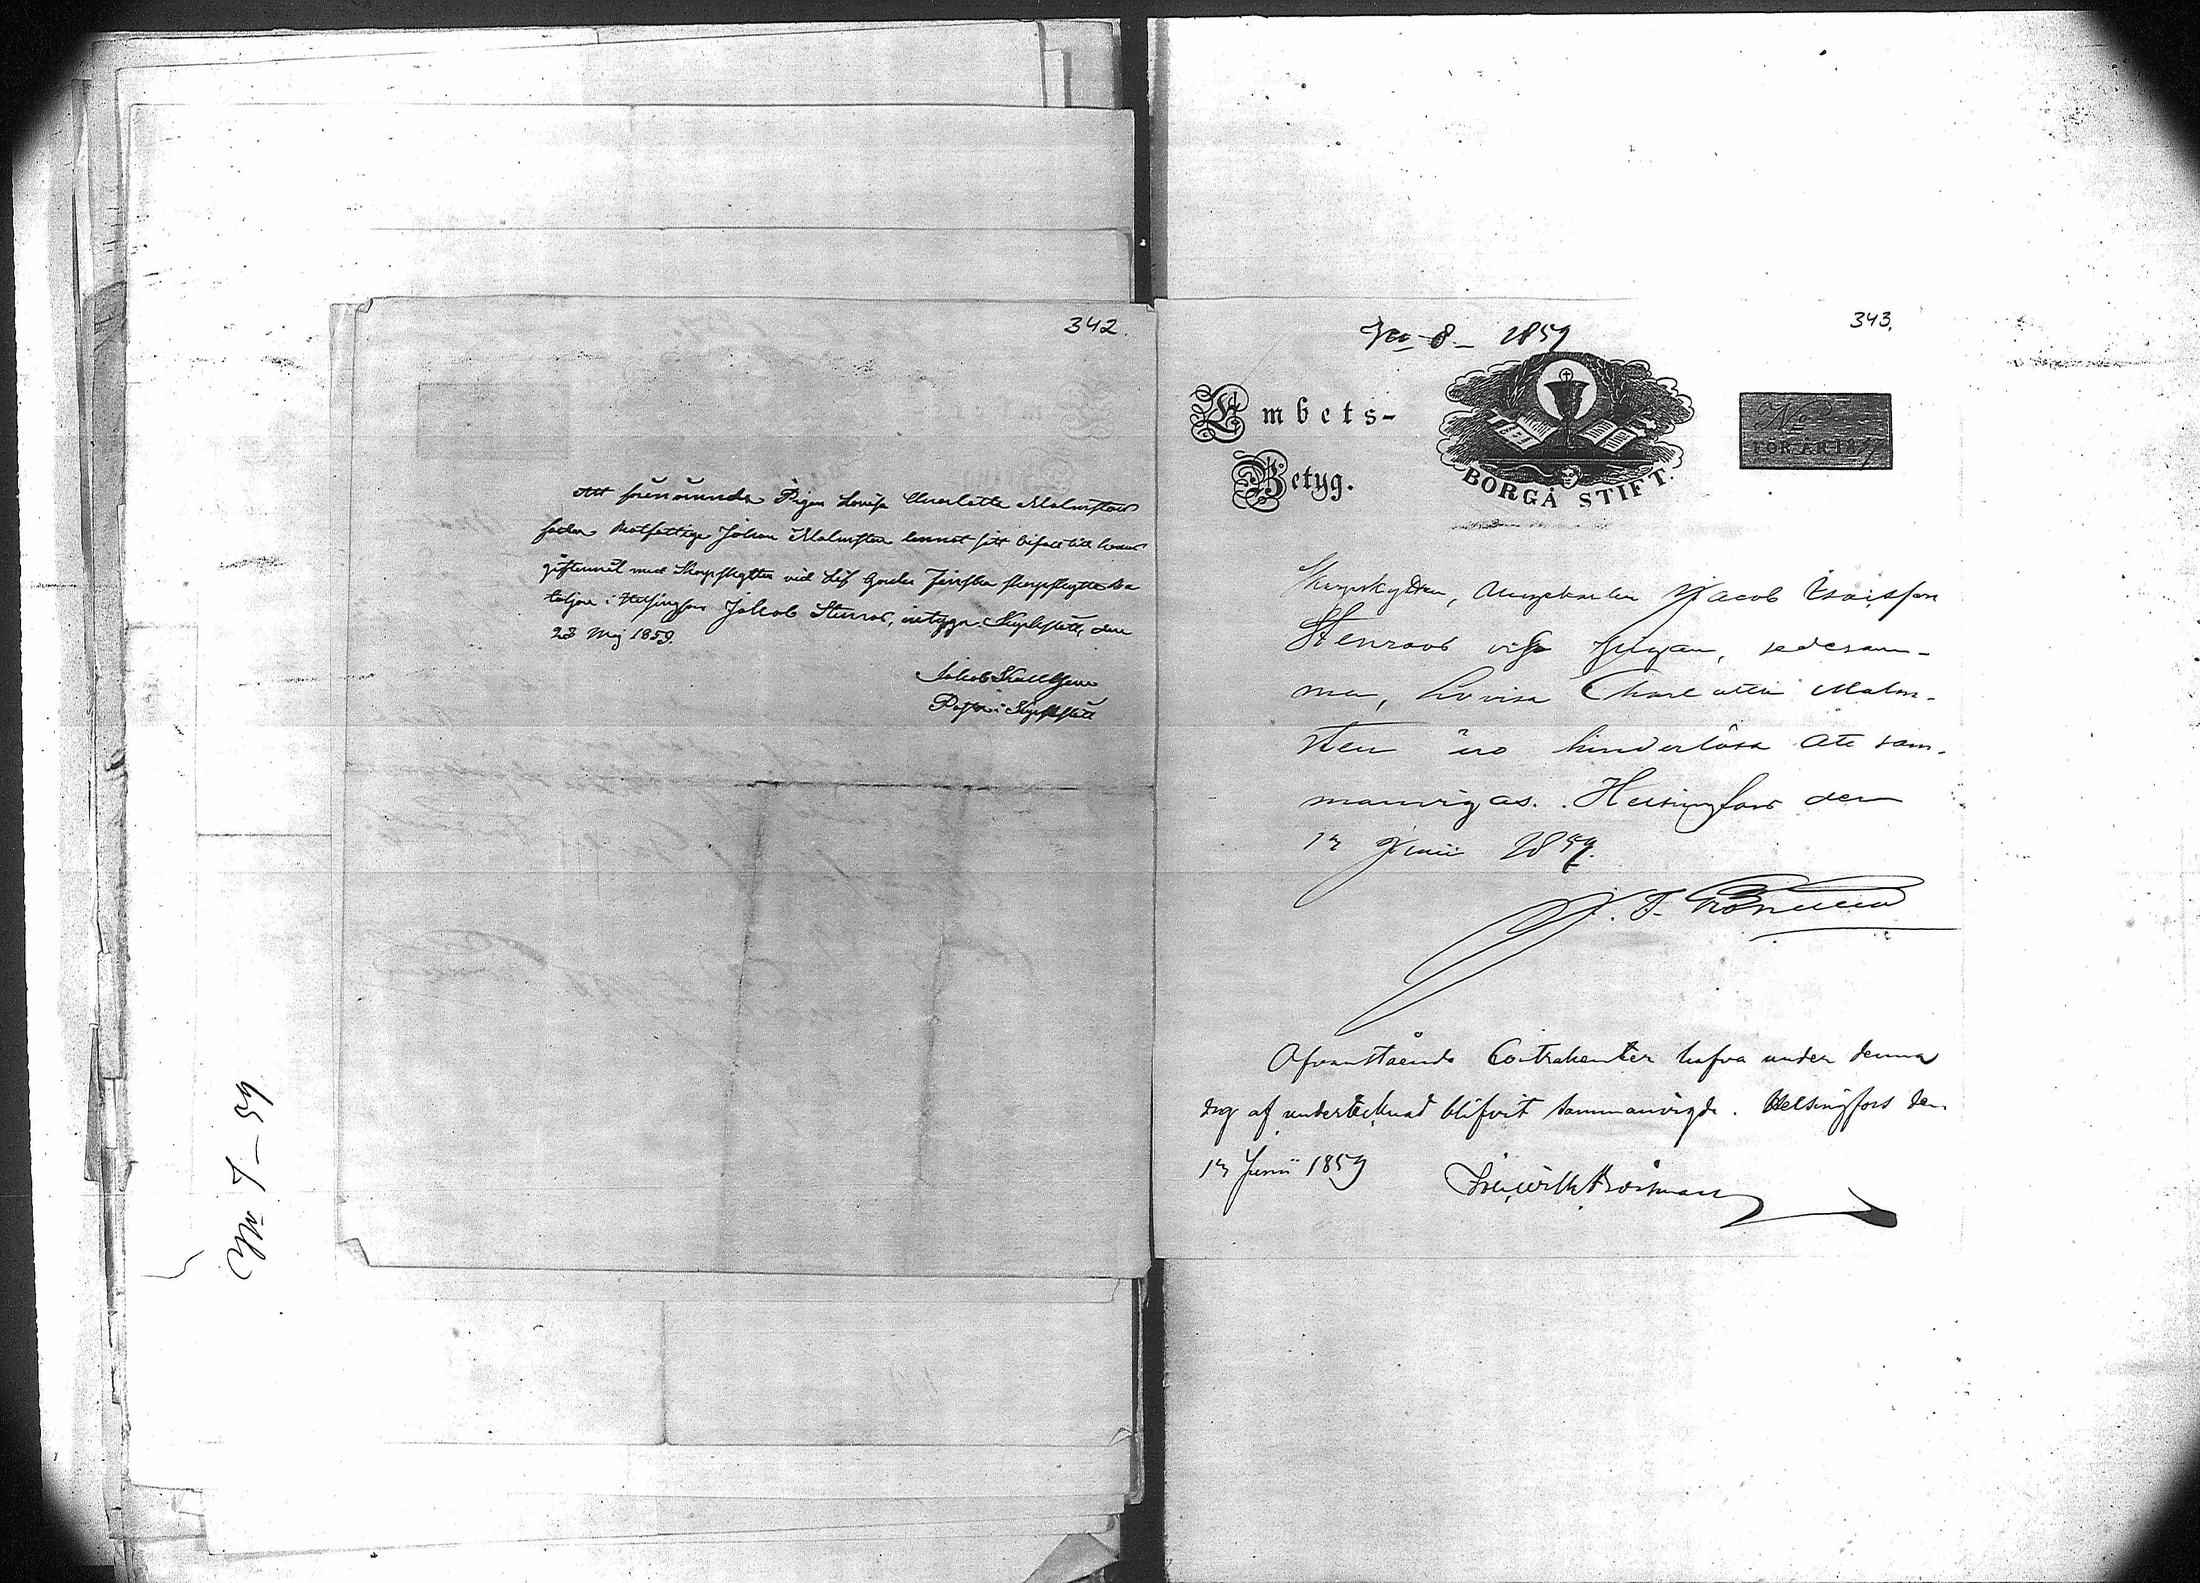 342.
Att förenämnde Pigan Lovisa Charlotta Malmstens
fader Rotfattige Johan Malmsten lemnat sitt bifall till hennes
giftermål med Skarpskytten vid Lif Gardes Finska Skarpskytte ba
taljon i Helsingfors Jakob Stenros, intygar. Kyrkslätt, den
23 Maj 1859.
Jakob
Pastor i Kyrkslätt
No 7 - 59
343.
No 8 - 1859
Embets-
Betyg.
BORGÅ STIFT.
No
FÖR ÅR 18
Skarpskytten, Ungkarlen Jacob Esaisson
Stenroos och pigan, sedesam-
ma, Lovisa Charlotta Malm-
sten äro hinderlösa att sam-
manvigas. Helsingfors den
17 Junii 1859.
Ofvanstående Contrahenter hafva under denna
dag af undertecknad blifvit sammanvigde. Helsingfors den
17 Junii 1859